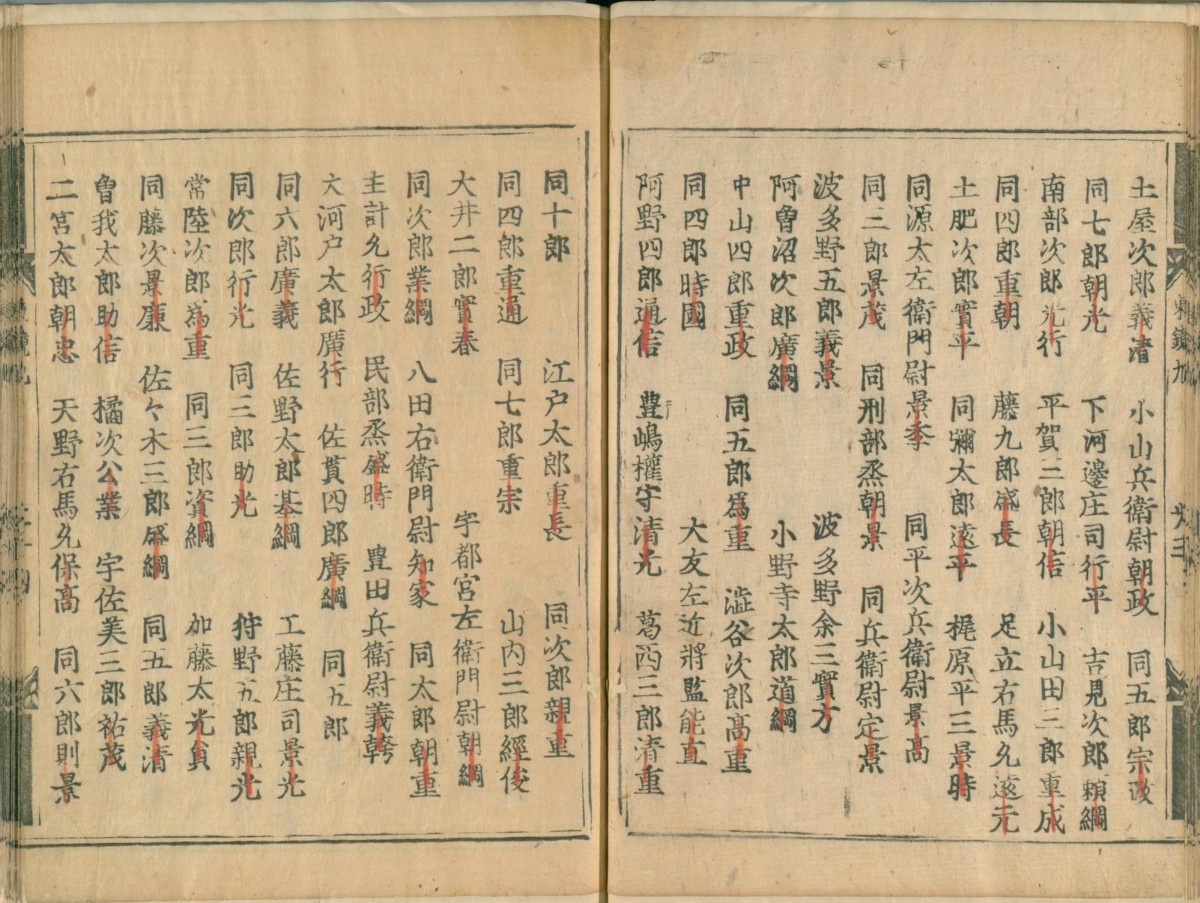 土屋次郎義清　小山兵衛尉朝政　同五郎宗政
同七郎朝光　下河邊庄司行平　吉見次郎頼綱
南部次郎光行　平賀三郎朝信　小山田三郎重成
同四郎重朝　藤九郎盛長　足立右馬允遠元
土肥次郎實平　同彌太郎遠平　梶原平三景時
同源太左衛門尉景季　同平次兵衛尉景高
同三郎景茂　同刑部烝朝景　同兵衛尉定景
波多野五郎義景　波多野余三實方
阿曽沼次郎廣綱　小野寺太郎道綱
中山四郎重政　同五郎爲重　澁谷次郎高重
同四郎時國　大友左近將監能直
阿野四郎通信　豊嶋權守清光　葛西三郎清重
東鏡九
同十郎　江戸太郎重長　同次郎親重
同四郎重通　同七郎重宗　山内三郎經俊
大井二郎實春　宇都宮左衛門尉朝綱
同次郎業綱　八田右衛門尉知家　同太郎朝重
主計允行政　民部烝盛時　豊田兵衛尉義幹
大河戸太郎廣行　佐貫四郎廣綱　同五郎
同六郎廣義　佐野太郎基綱　工藤庄司景光
同次郎行光　同三郎助光　狩野五郎親光
常陸次郎為重　同三郎資綱　加藤太光員
同藤次景廉　佐々木三郎盛綱　同五郎義清
曽我太郎助信　橘次公業　宇佐美三郎祐茂
二宮太郎朝忠　天野右馬允保高　同六郎則景